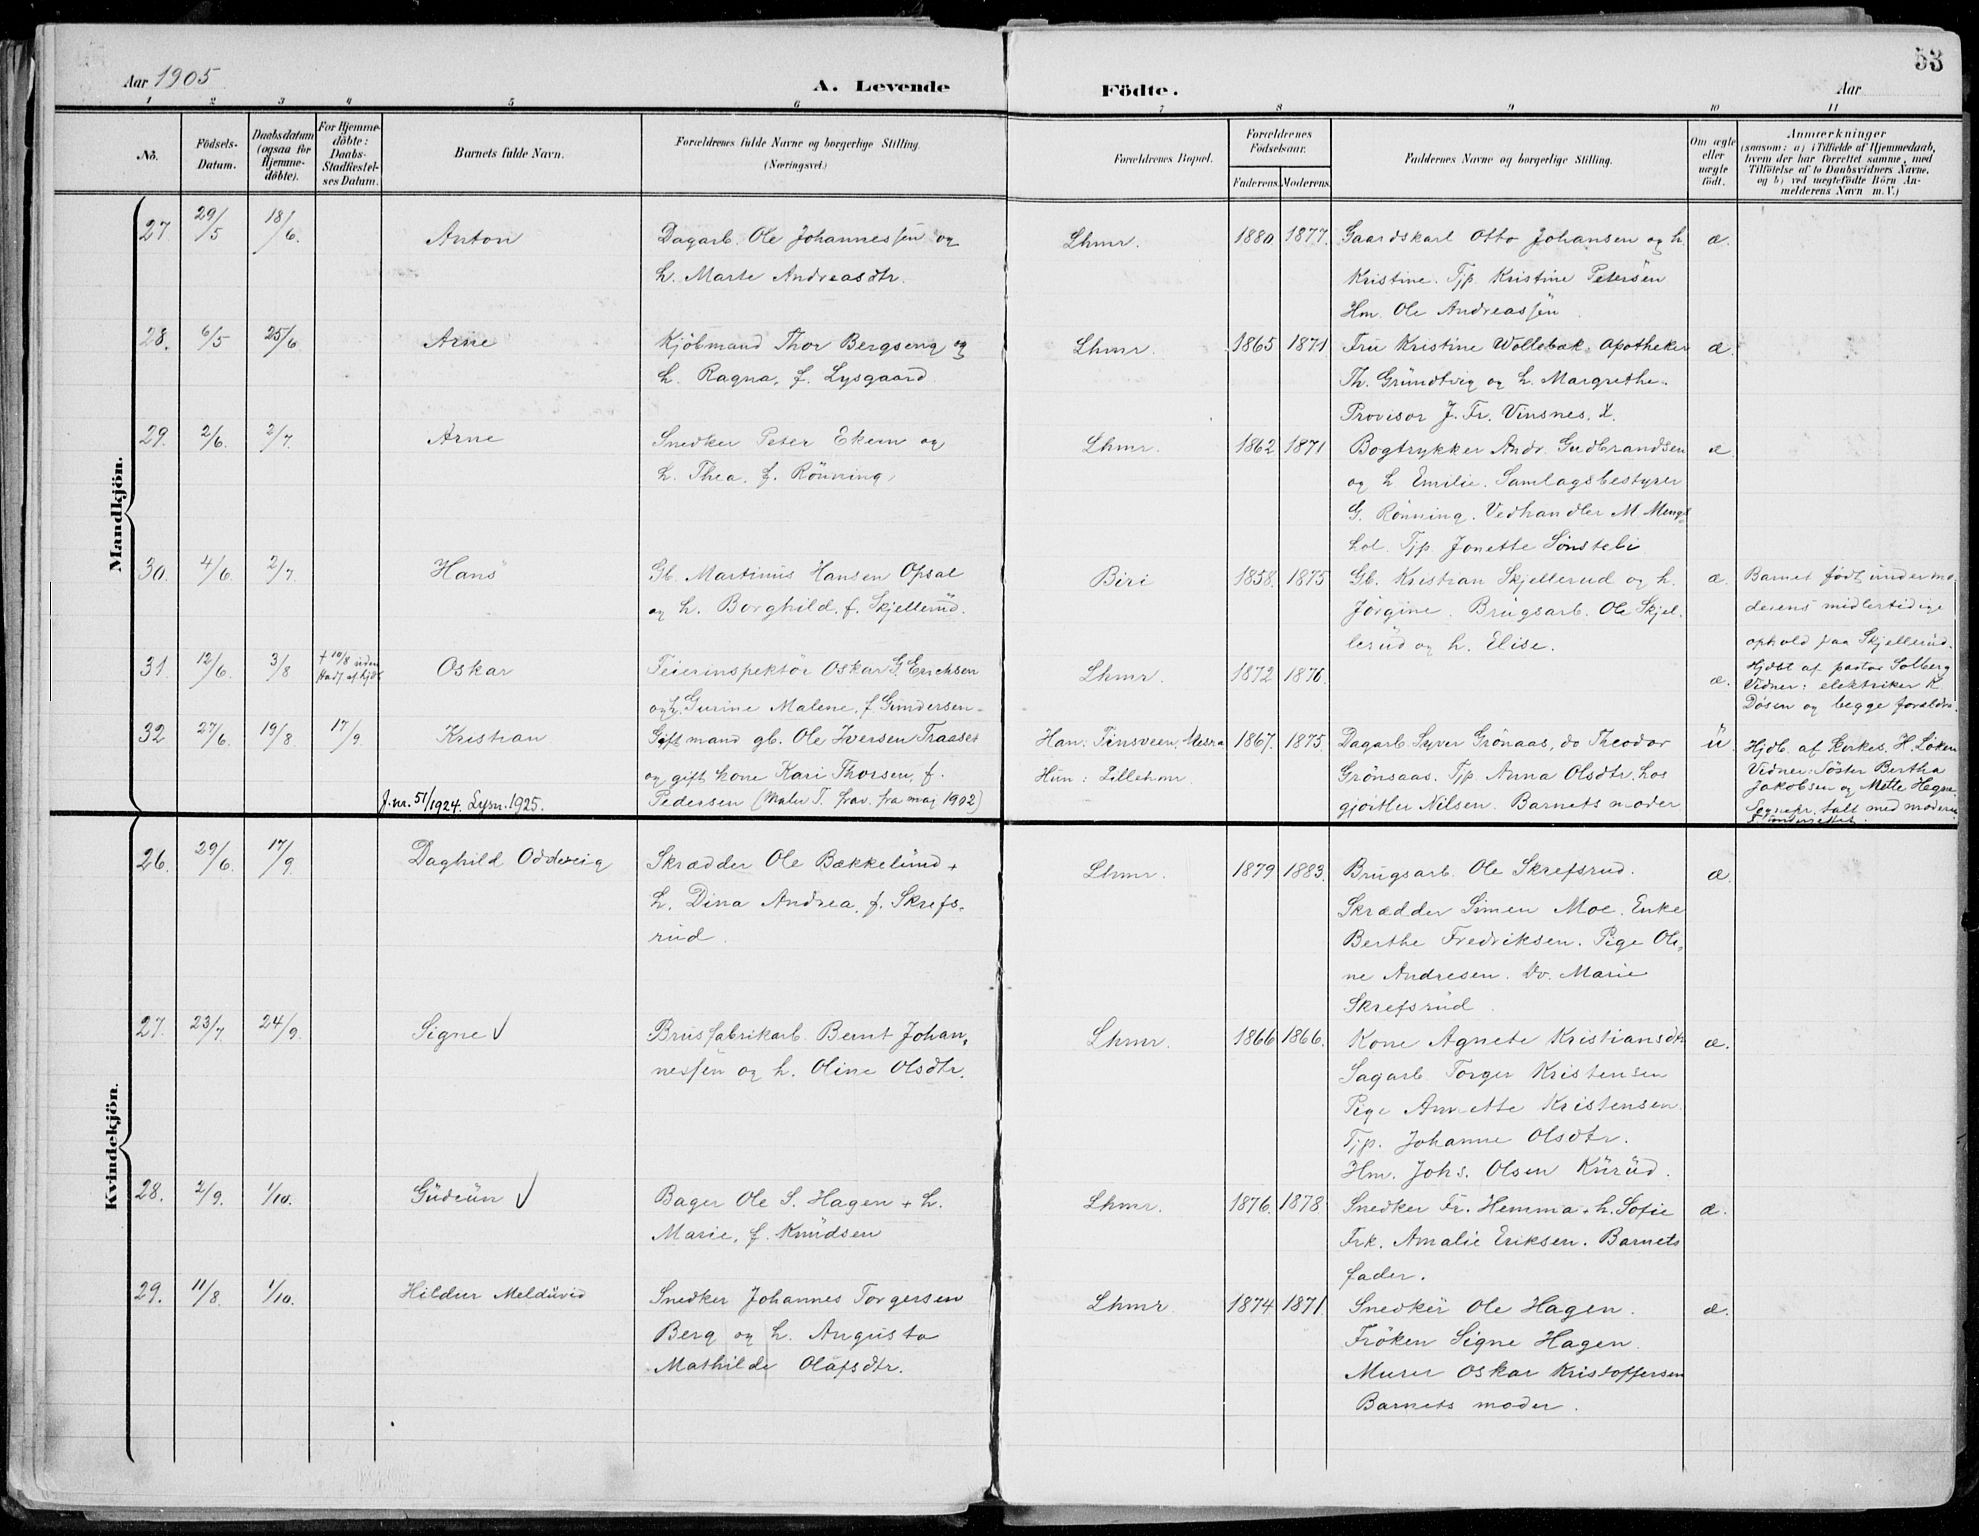 53
Aar 1905
A. Levende
Födte.
Aar
1 2 3 4 5 6 7 8 9 10 11
No.
Födsels-Datum.
Daabsdatum (ogsaa for Hjemme-döbte).
For Hjemme-döbte: Daabs-Stadfæstel-ses Datum.
Barnets fulde Navn.
Forældrenes fulde Navne og borgerlige Stilling.
(Næringsvei.)
Forældrenes Bopæl.
Forældrenes Födselsaar.
Faderens. Moderens.
Faddernes Navne og borgerlige Stilling.
Om ægte eller uægte födt.
Anmærkninger
(saasom: a) i Tilfælde af Hjemmedaab,
hvem der har forrettet samme, med
Tilföielse af to Daabsvidners Navne,
og b) ved uægtefödte Börn An-
melderens Navn m. V.)
Mandkjön.
27 29/5 18/6. Anton
Dagarb. Ole Johannessen og
h. Marte Andreasdtr.
Lhmr. 1880 1877.
Gaardskarl Otto Johansen og h.
Kristine. Tjp Kristine Petersen
Hm. Ole Andreassen
æ.
28. 6/5 25/6 Arne
Kjöbmand Thor Bergseng og
h. Ragna, f. Lysgaard
Lhmr. 1865 1871
Fru Kristine Wollebæk. Apotheker
Th. Grundtvig og h. Margrethe.
Provisor J. Fr. Vinsnes. X.
æ.
29. 2/6. 2/7. Arne
Snedker Peter Ekern og
h. Thea, f. Rönning,
Lhmr. 1862 1871
Bogtrykker Andr. Gudbrandsen
og h Emilie. Samlagsbestyrer
G. Rönning. Vedhandler M Mengs
hol. Tjp Jonette Sönstebi
æ.
30. 4/6. 2/7. Hans
Gb. Martinus Hansen Opsal
og h. Borghild, f. Skjellerud.
Biri 1858. 1875
Gb. Kristian Skjellerud og h.
Jörgine. Brugsarb. Ole Skjel-
lerud og h. Elise.
æ.
Barnet födt under mo-
derens midlertidige
ophold paa Skjellerud.
31. 12/6. 3/8 † 10/8 uden
stadf. af hjdb
Oskar
Feierinspektör Oskar G. Erichsen
og h. Gurine Malene, f. Gundersen.
Lhmr. 1872 1876.
æ.
Hjdbt af pastor Solberg
Vidner: elektriker K.
Dösen og begge forældre.
32 27/6. 19/8. 17/9. Kristian
Gift mand gb. Ole Iversen Traaset
og gift kone Kari Thorsen, f.
Pedersen (Maler T. frav. fra maj 1902)
J.nr. 51/1924. Lysn. 1925.
Han: Tinsveen, Mesna
Hun: Lillehmr
1867. 1875.
Dagarb Syver Grönaas, do Theodor
Grönsaas. Tjp Anna Olsdtr. hos
gjörtler Nilsen. Barnets moder
ü
Hjdb. af kirkes. H. Löken
Vidner: Söster Bertha
Jakobsen og Mette Hagne.
Sognepr. talt med moderen
Kvindekjön.
26. 29/6. 17/9. Daghild Oddveig
Skrædder Ole Bækkelund +
h. Dina Andrea, f. Skrefs-
rud.
Lhmr. 1879 1883.
Brugsarb. Ole Skrefsrud.
Skrædder Simen Moe. Enke
Berthe Fredriksen. Pige Oli-
ne Andresen. Do. Marie
Skrefsrud.
æ.
27. 23/7. 24/9. Signe √
Brusfabrikarb. Bernt Johan-
nessen og h. Oline Olsdtr.
Lhmr. 1866 1866.
Kone Agnete Kristiansdtr
Sagarb. Torger Kristensen
Pige Annette Kristensen.
Tjp. Johanne Olsdtr.
Hm. Johs. Olsen Kurud.
æ.
28. 2/9. 1/10. Gudrun √
Bager Ole S. Hagen + h.
Marie, f. Knudsen
Lhmr. 1876. 1878
Snedker Fr. Hemma + h. Sofie
Frk. Amalie Eriksen. Barnets
fader.
æ.
29. 11/8. 1/10. Hildur Melduvid
Snedker Johannes Torgersen
Berg og h. Augusta
Mathilde Olafsdtr.
Lhmr. 1874 1871
Snedker Ole Hagen.
Fröken Signe Hagen.
Murer Oskar Kristoffersen
Barnets moder.
æ.